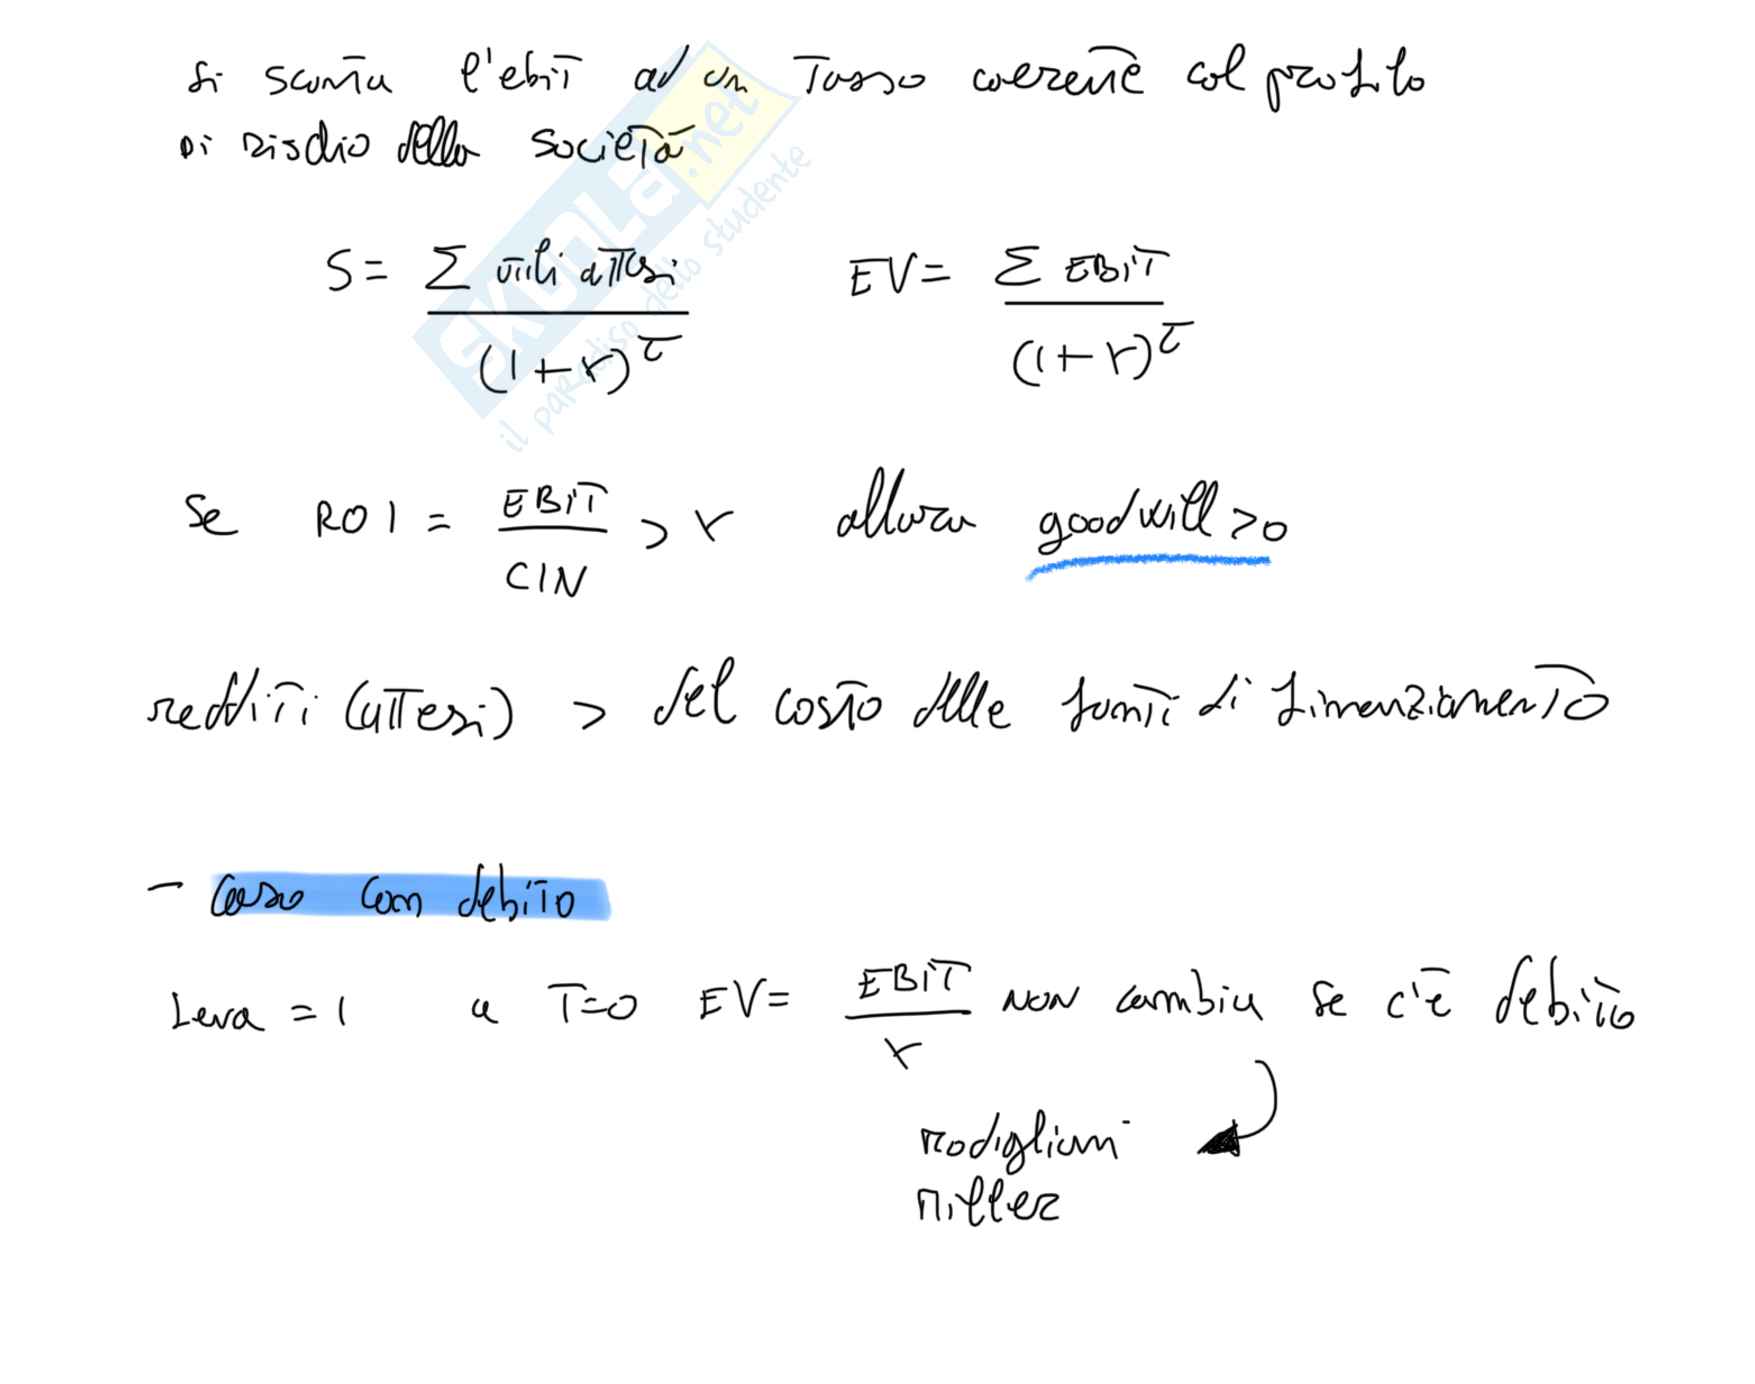 Si sconta l'ebit ad un Tasso coerente col profilo
Di rischio della società
S = Σ utili attesi / (1+r)^t    EV = Σ EBIT / (1+r)^t
Se ROI = EBIT / CIN > r allora goodwill >0
redditi (attesi) > del costo delle fonti di finanziamento
- Caso con debito
Leva = 1 a T=0 EV = EBIT / r NON cambia se c'è debito
Modigliani
Miller
SKUOLA.net
il paradiso dello studente